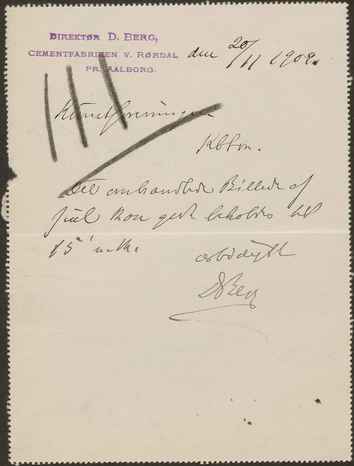 DIREKTØR D. BERG,
CEMENTFABRIKEN V. RØRDAL
PR. AALBORG.
den 20/11 1902.
Kunstforeningen
Kbhvn.
Det omhandlede Billede af
kan godt beholdes til
15' m.
ærbødigst
DBerg